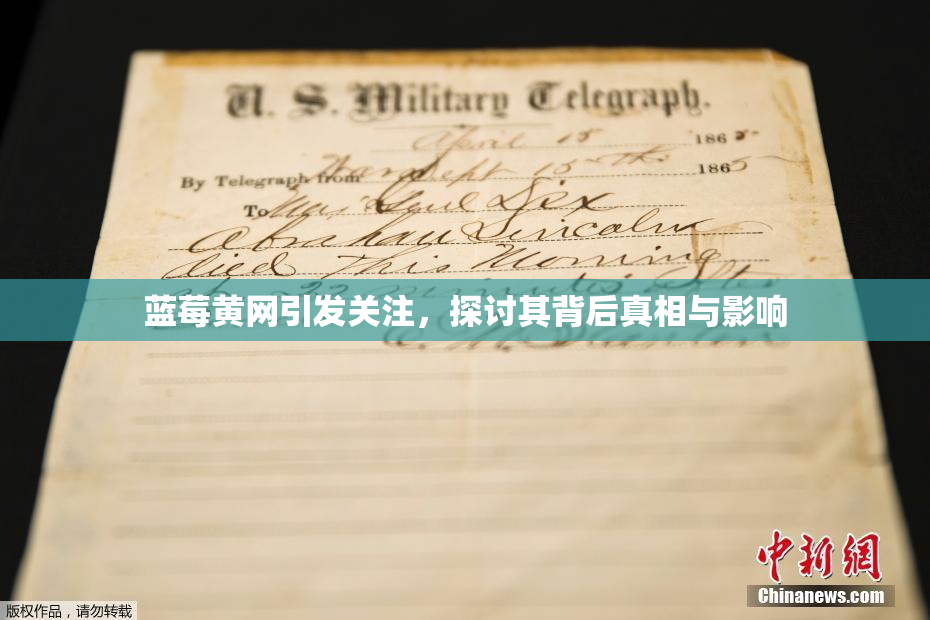 U. S. Military Telegraph.
April 15 1865
By Telegraph from War Dept 15th 1865
To Maj Genl Dix
Abraham Lincoln
died This Morning
at 22 minutes after
蓝莓黄网引发关注，探讨其背后真相与影响
E. M. Stanton
中新网
Chinanews.com
版权作品，请勿转载